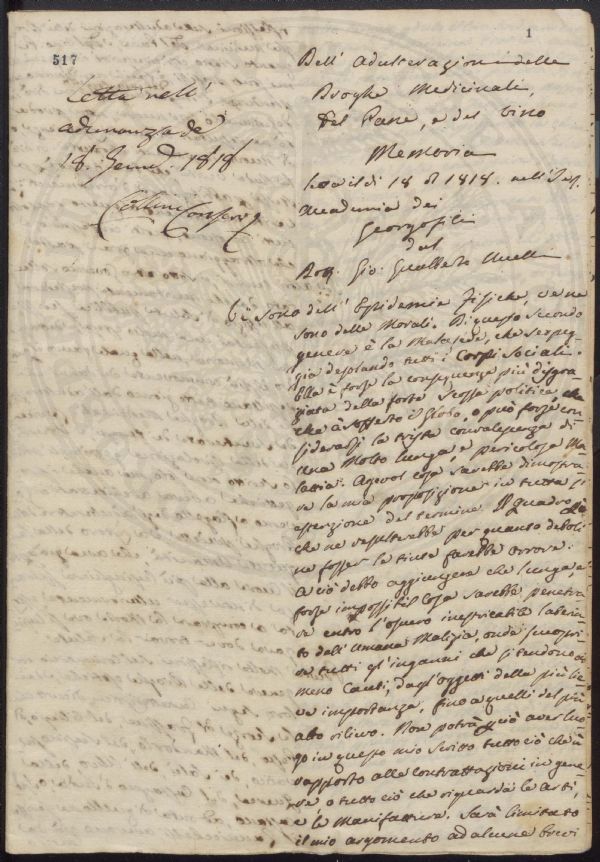 1
517
Letta nell'
adunanza de'
18. Genn. 1818
Dell' Adulterazione delle
Droghe Medicinali,
del Pane, e del Vino
Memoria
Letta il dì 18 1818. nell'
Accademia dei
Georgofili
dal
Gio:
Vi sono dell' Epidemie Fisiche, ve ne
sono delle Morali. Di questo secondo
genere è la Malafede, che serpeg-
gia desolando tutti i Corpi Sociali.
Ella è forse la conseguenza più disgra-
ziata della forte scossa politica, che
à sofferto il Globo, o può forse con
siderarsi la trista convalescenza di
una molto lunga, e pericolosa Ma-
lattia. Agevol cosa sarebbe dimostra
re la mia proposizione in tutta l'
estenzione del termine. Il quadro
che ne resulterebbe per quanto deboli
ne fosser le tinte farebbe orrore.
A ciò debbo aggiungere che lunga, e
forse impossibil cosa sarebbe penetra
re entro l'oscuro inestricabile laberin
to dell' Umana Malizia, onde scuopri
re tutti gl' inganni che si tendono ai
meno Cauti, dagl' oggetti della più lie
ve importanza, fino a quelli del più
alto rilievo. Non potrà perciò aver luo
go in questo mio scritto tutto ciò che à
rapporto alle contrattazioni in gene
re o tutto ciò che riguarda le arti,
e le Manifatture. Sarà limitato
il mio argomento ad alcune brevi